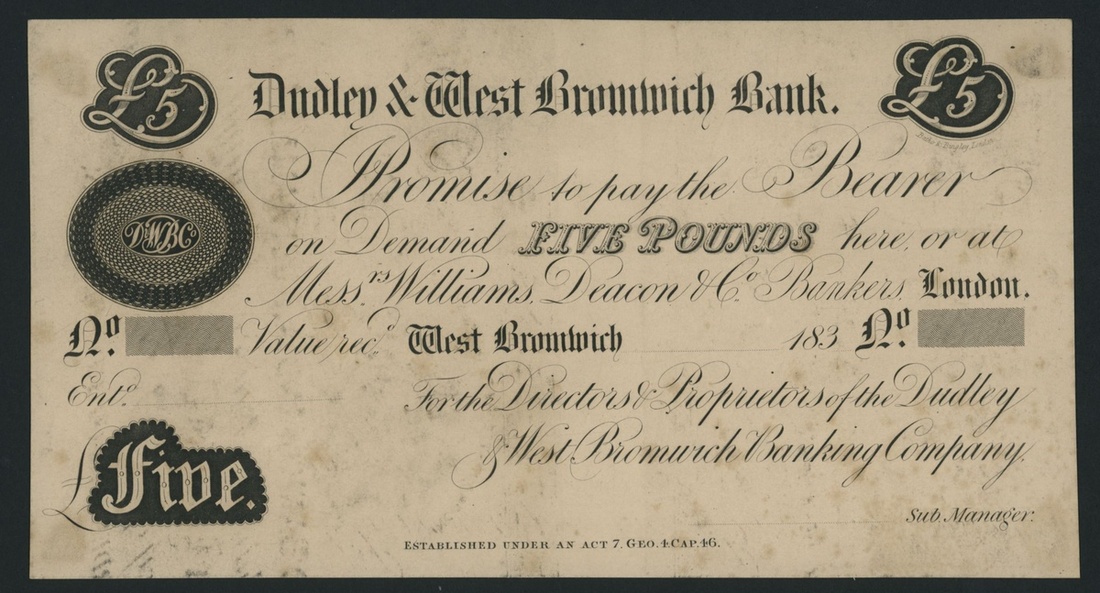 £5 Dudley & West Bromwich Bank. £5
Promise to pay the Bearer
DWBCo
on Demand FIVE POUNDS here, or at
Messrs. Williams, Deacon & Co. Bankers, London.
No. Value recd. West Bromwich 183 No.
Entd.
For the Directors & Proprietors of the Dudley
& West Bromwich Banking Company.
£ Five.
Sub. Manager.
ESTABLISHED UNDER AN ACT 7. GEO. 4. CAP. 46.